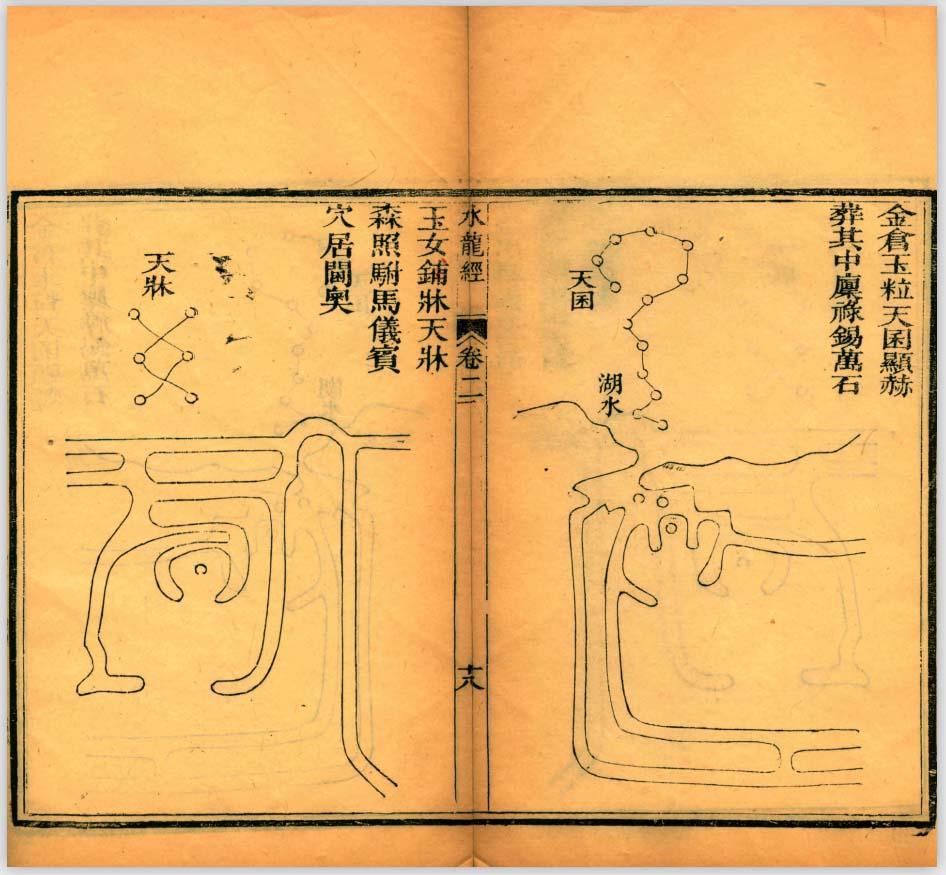 金倉玉粒天囷顯赫
葬其中廩祿錫萬石
天囷
湖水
水龍經
卷二
十八
玉女鋪牀天牀
森照駙馬儀賓
穴居閫奧
天牀